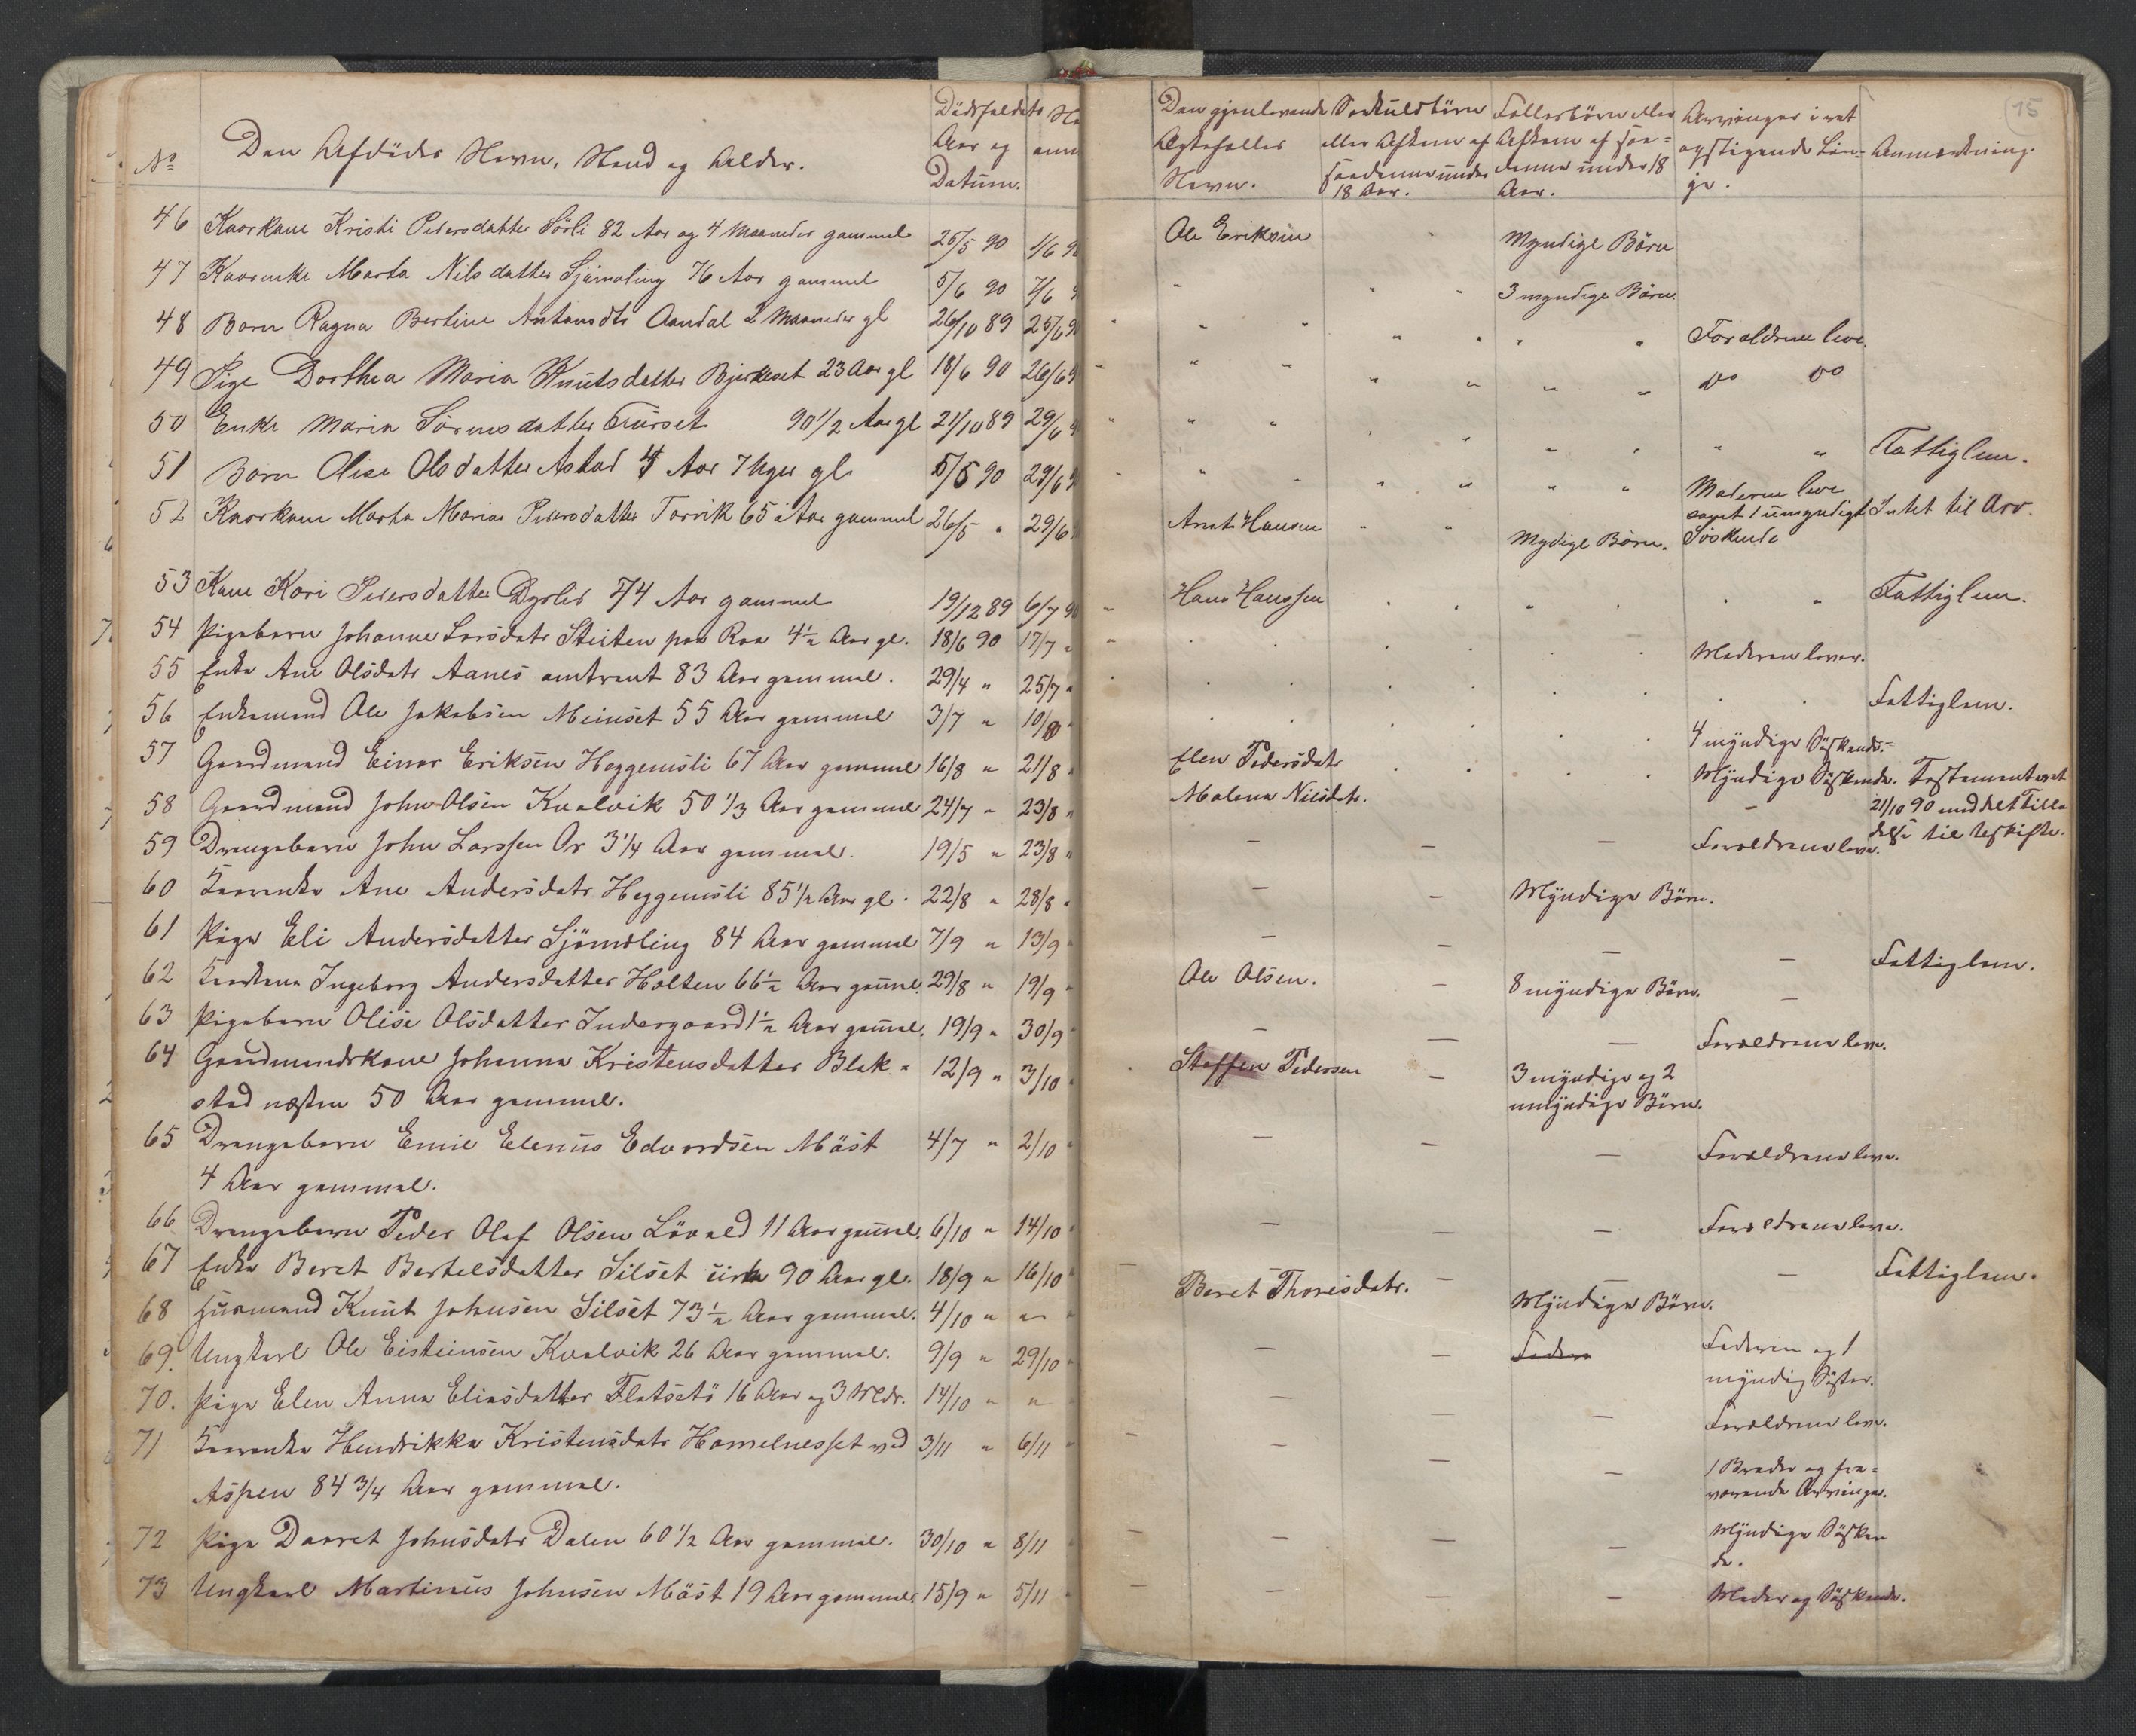 Dødsfaldets
Den Afdødes Navn, Stand og Alder.
No
Aar og
Datum.
46 Kaarkone Kristi Pedersdatter Sörli 82 Aar og 4 Maaneder gammel 25/5 90 1/6
47 Kaarenke Marta Nilsdatter Sjömæling 76 Aar gammel 5/6 90 7/6
48 Barn Ragna Bertine Antonsdtr Aandal 2 Maaneder gl 26/10 89 25/6
49 Pige Dorthea Maria Knutsdatter Bjerkeset 23 Aar gl 18/6 90 26/6
50 Enke Maria Sörensdatter Furset 90 1/2 Aar gl 21/10 89 29/6
51 Barn Olise Olsdatter Astad 4 Aar 7 Uger gl 5/5 90 29/6
52 Kaarkone Marta Maria Pedersdatter Torvik 65 Aar gammel 26/5 " 29/6
53 Kone Kari Pedersdatter Dyrlid 74 Aar gammel 19/12 89 6/7 90
54 Pigebarn Johanne Larsdatr Stuten paa Roa 4 1/2 Aar gl. 18/6 90 17/7 "
55 Enke Ane Olsdatr Aanes omtrent 83 Aar gammel. 29/4 " 25/7 "
56 Enkemand Ole Jakobsen Meinset 55 Aar gammel 3/7 " 10/8
57 Gaardmand Einar Eriksen Heggemsli 67 Aar gammel 16/8 " 21/8
58 Gaardmand John Olsen Kvalvik 50 1/3 Aar gammel 24/7 " 23/8 "
59 Drengebarn John Larssen Or 3 1/4 Aar gammel. 19/5 " 23/8 "
60 Kaarenke Ane Andersdatr Heggemsli 85 1/2 Aar gl. 22/8 " 28/8 "
61 Pige Eli Andersdatter Sjömæling 84 Aar gammel 7/9 " 13/9
62 Kaarkone Ingeborg Andersdatter Holten 66 1/2 Aar gammel. 29/8 " 19/9
63 Pigebarn Olise Olsdatter Indergaard 1 1/2 Aar gammel. 19/9 " 30/9
64 Gaardmandskone Johanna Kristensdatter Blak= 12/9 " 3/10
stad næsten 50 Aar gammel.
65 Drengebarn Emil Elenus Edvardsen Mäst 4/7 " 2/10
4 Aar gammel.
66 Drengebarn Peder Olaf Olsen Lövold 11 Aar gammel. 6/10 " 14/10
67 Enke Beret Bertelsdatter Silset cirka 90 Aar gl. 18/9 " 16/10
68 Husmand Knut Johnsen Silset 73 1/2 Aar gammel. 4/10 " "
69. Ungkarl Ole Eisteinsen Kvalvik 26 Aar gammel. 9/9 " 29/10
70. Pige Elen Anna Eliasdatter Flatsetö 16 Aar og 3 Mdr. 14/10 " "
71 Kaarenke Hendrikka Kristensdatr Hamelnesset ved 3/11 " 6/11
Aspen 84 3/4 Aar gammel.
72 Pige Daaret Johnsdatr Dalen 60 1/2 Aar gammel. 30/10 " 8/11
73 Ungkarl Martinus Johnsen Mäst 19 Aar gammel. 15/9 " 5/11
15
Den gjenlevende Særkuldbørn Fællesbørn eller Arvinger i ret
Ægtefælles eller Afkom af Afkom af saa= opstigende Lin= Anmærkning.
Navn. saadanne under danne under 18 je.
18 Aar. Aar.
Ole Eriksen Myndige Börn
3 myndige Börn.
Forældrene leve.
do do
Fattiglem.
Moderen leve
samt 1 umyndigt Intet til Arv.
Arnt Hansen Mydige Börn. Söskende
Hans Hanssen Fattiglem.
Moderen lever.
Fattiglem.
4 myndige Söskende.
Elen Pedersdatr Myndige Söskende. Testamenteret
Malena Nilsdatr. 21/10 90 meddelt Tilla
delse til Uskifte.
Forældrene leve.
Myndige Børn.
Fattiglem.
Ole Olsen. 8 myndige Børn.
Forældrene leve.
Steffen Pedersen 3 myndige og 2
umyndige Børn.
Forældrene leve.
Forældrene leve.
Fattiglem.
Beret Thoresdatr. Myndige Børn.
Fader Faderen og 1
myndig Søster.
Forældrene leve.
1 Broder og fra=
værende Arvinger.
Myndige Søsken
de.
Moder og Søskende.